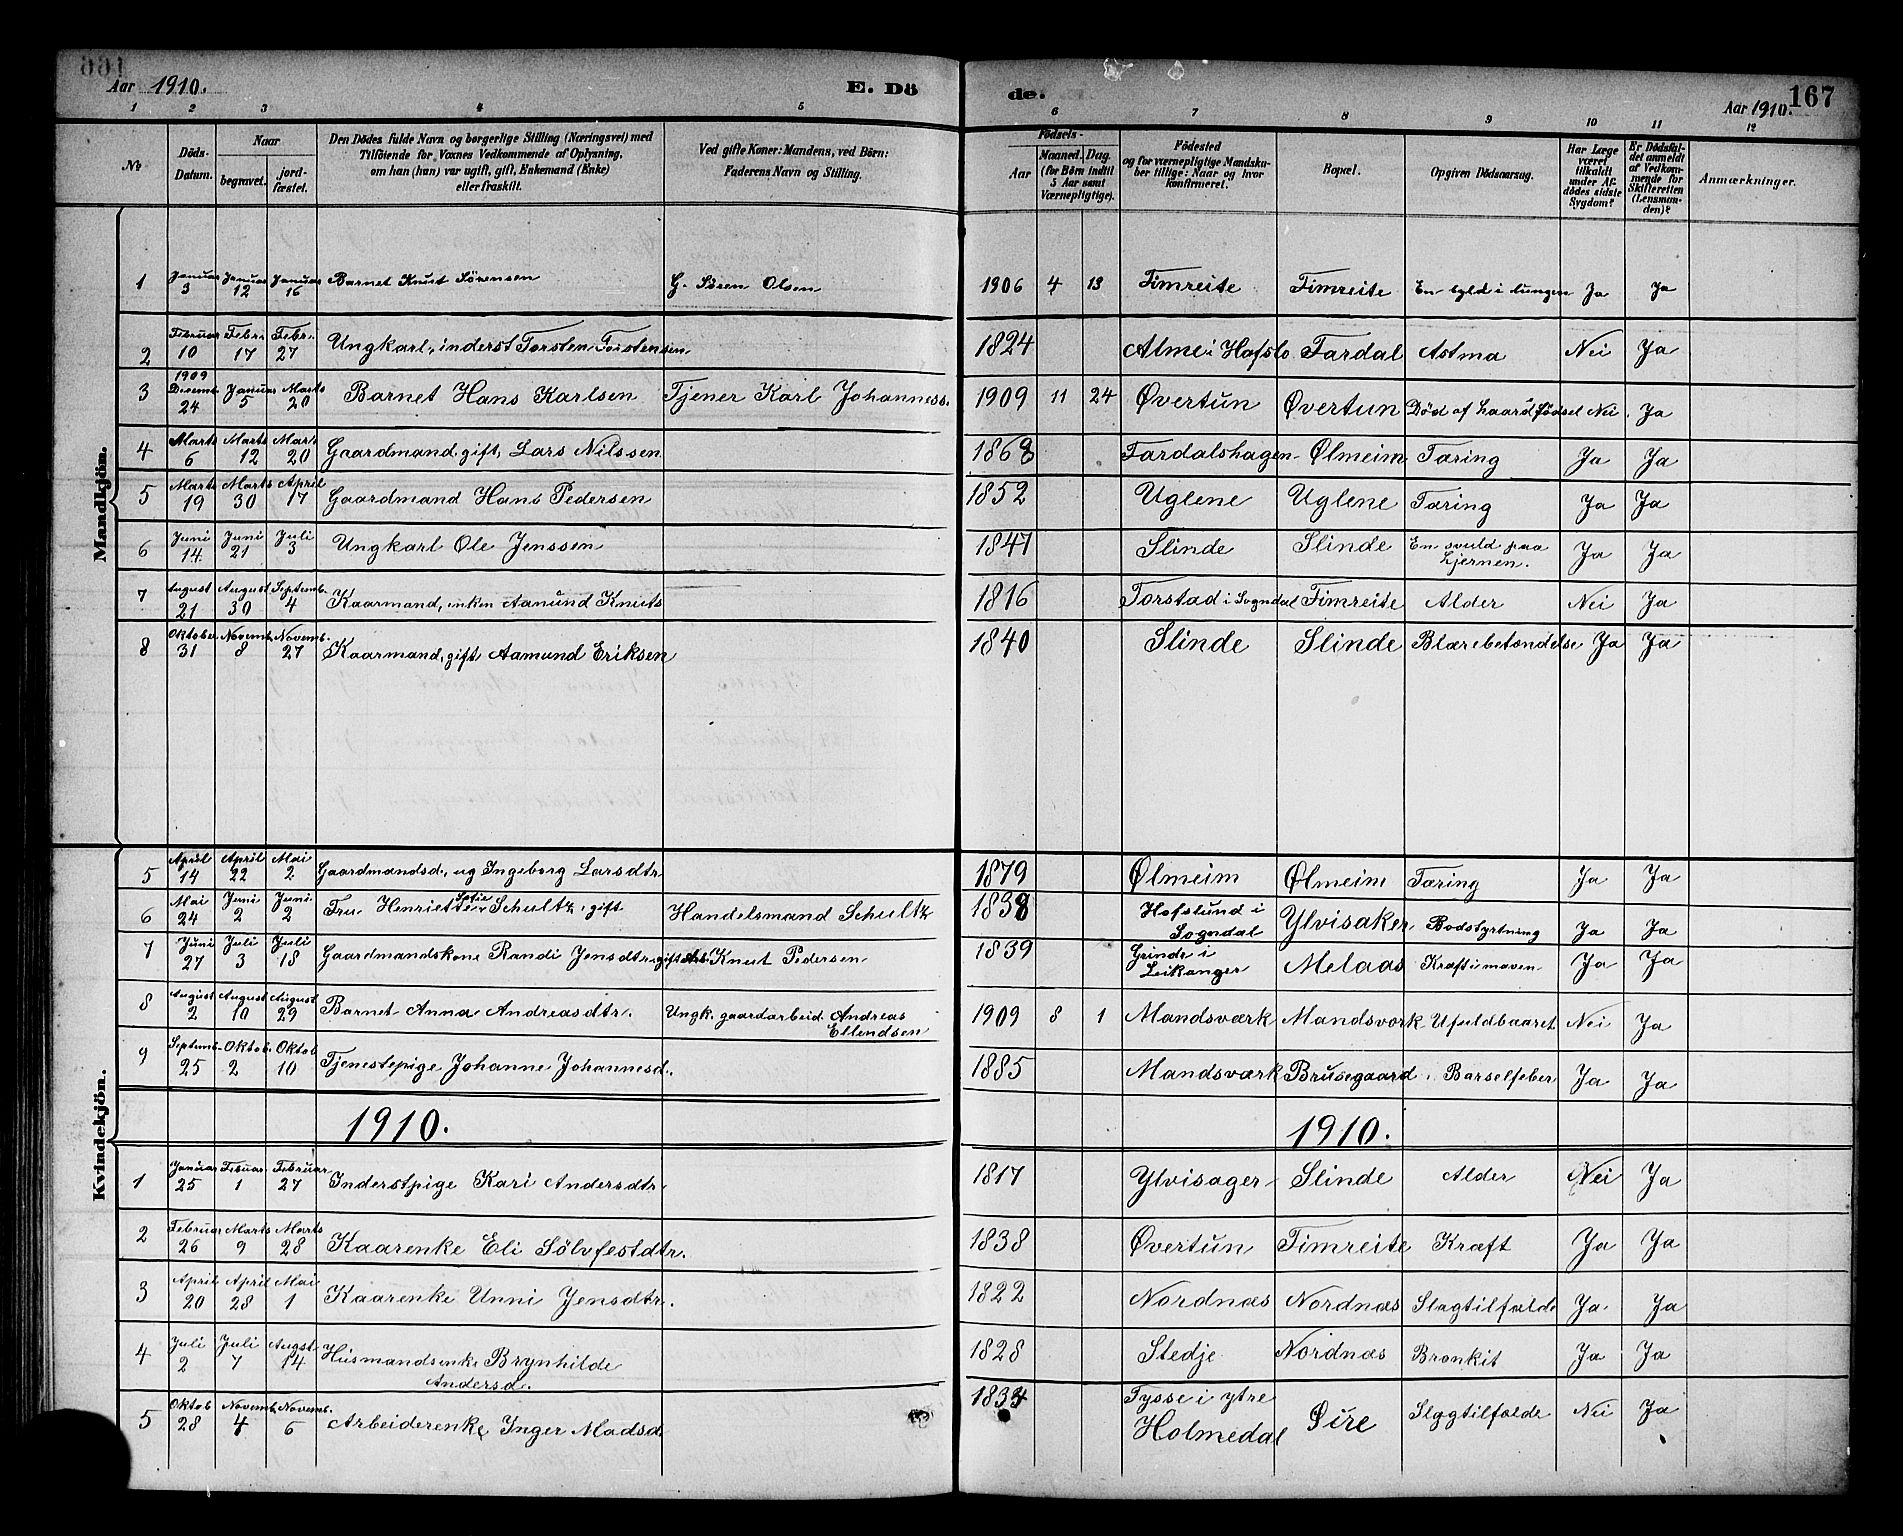 Aar 1910. E. Dö de. Aar 1910. 167
1 2 3 4 5 6 7 8 9 10 11 12
№ Döds-Datum. Naar begravet. jord-fæstet. Den Dödes fulde Navn og borgerlige Stilling (Næringsvei) med Tilföiende for Voxnes Vedkommende af Oplysning, om han (hun) var ugift, gift, Enkemand (Enke) eller fraskilt. Ved gifte Koner: Mandens, ved Börn: Faderens Navn og Stilling. Födsels- Aar Maaned. Dag. (for Börn indtil 5 Aar samt Værnepligtige). Födested og for værnepligtige Mandskaber tillige: Naar og hvor konfirmeret. Bopæl. Opgiven Dödsaarsag. Har Læge været tilkaldt under Afdödes sidste Sygdom? Er Dödsfaldet anmeldt af Vedkommende for Skifteretten (Lensmanden)? Anmærkninger.
Mandkjön.
1 Januar 3 Januar 12 Januar 16 Barnet Knut Sörensen G. Sören Olsen 1906 4 13 Fimreite Fimreite En byld i lungen Ja Ja
2 Februar 10 Febr. 17 Febr. 27 Ungkarl, inderst Torsten Torstensen 1824 Alme i Hafslo Fardal Astma Nei Ja
3 1909 Decemb. 24 Januar 5 Marts 20 Barnet Hans Karlsen Tjener Karl Johanness. 1909 11 24 Øvertun Øvertun Död af haard Födsel Nei. Ja
4 Marts 6 Marts 12 Mar 20 Gaardmand, gift, Lars Nilssen 1868 Fardalshagen Ølmeim Tæring Ja Ja
5 Marts 19 Marts 30 April 17 Gaardmand Hans Pedersen 1852 Uglene Uglene Tæring Ja Ja
6 Juni 14 Juni 21 Juli 3 Ungkarl Ole Jenssen 1847 Slinde Slinde En svuld paa hjernen. Ja Ja
7 August 21 August 30 Septemb. 4 Kaarmand, enkem Aamund Knuts 1816 Torstad i Sogndal Fimreite Alder Nei Ja
8 Oktober 31 Novemb. 8 Novemb. 27 Kaarmand, gift Aamund Eriksen 1840 Slinde Slinde Blærebetændelse Ja Ja
Kvindekjön.
5 April 14 April 22 Mai 2 Gaardmandsd., ug Ingeborg Larsdtr 1879 Ølmeim Ølmeim Tæring Ja Ja
6 Mai 24 Juni 2 Juni 2 Fru Henriette Sofie Schultz, gift Handelsmand Schultz 1838 Hofslund i Sogndal Ylvisaker Bodstyrtning Ja Ja
7 Juni 27 Juli 3 Juli 18 Gaardmandskone Randi Jensdtr gift Knut Pedersen 1839 Grinde i Leikanger Melaas Kræft i maven Ja Ja
8 August 2 August 10 August 29 Barnet Anna Andreasdtr. Ungk. gaardarbeid. Andreas Ellendsen 1909 8 1 Mandsværk Mandsværk Ufuldbaaret Nei Ja
9 Septemb. 25 Oktob. 2 Oktob 10 Tjenestepige Johanne Johannesd. 1885 Mandsværk Brusegaard. Barselfeber Ja Ja
1910. 1910.
1 Januar 25 Februar 1 Februar 27 Inderstpige Kari Andersdtr 1817 Ylvisager Slinde Alder Nei Ja
2 Februar 26 Marts 9 Marts 28 Kaarenke Eli Sölvfestdtr. 1838 Øvertun Fimreite Kræft Ja Ja
3 April 20 April 28 Mai 1 Kaarenke Unni Jensdtr. 1822 Nordnæs Nordnæs Slagtilfælde Ja. Ja
4 Juli 2 Juli 7 Augst 14 Husmandsenke Brynhilde Andersd. 1828 Stedje Nordnæs Bronkit Ja Ja
5 Oktob 28 Novemb. 4 Novemb. 6 Arbeiderenke Inger Madsd 1834 Tysse i ytre Holmedal Øire Slagtilfælde Nei Ja